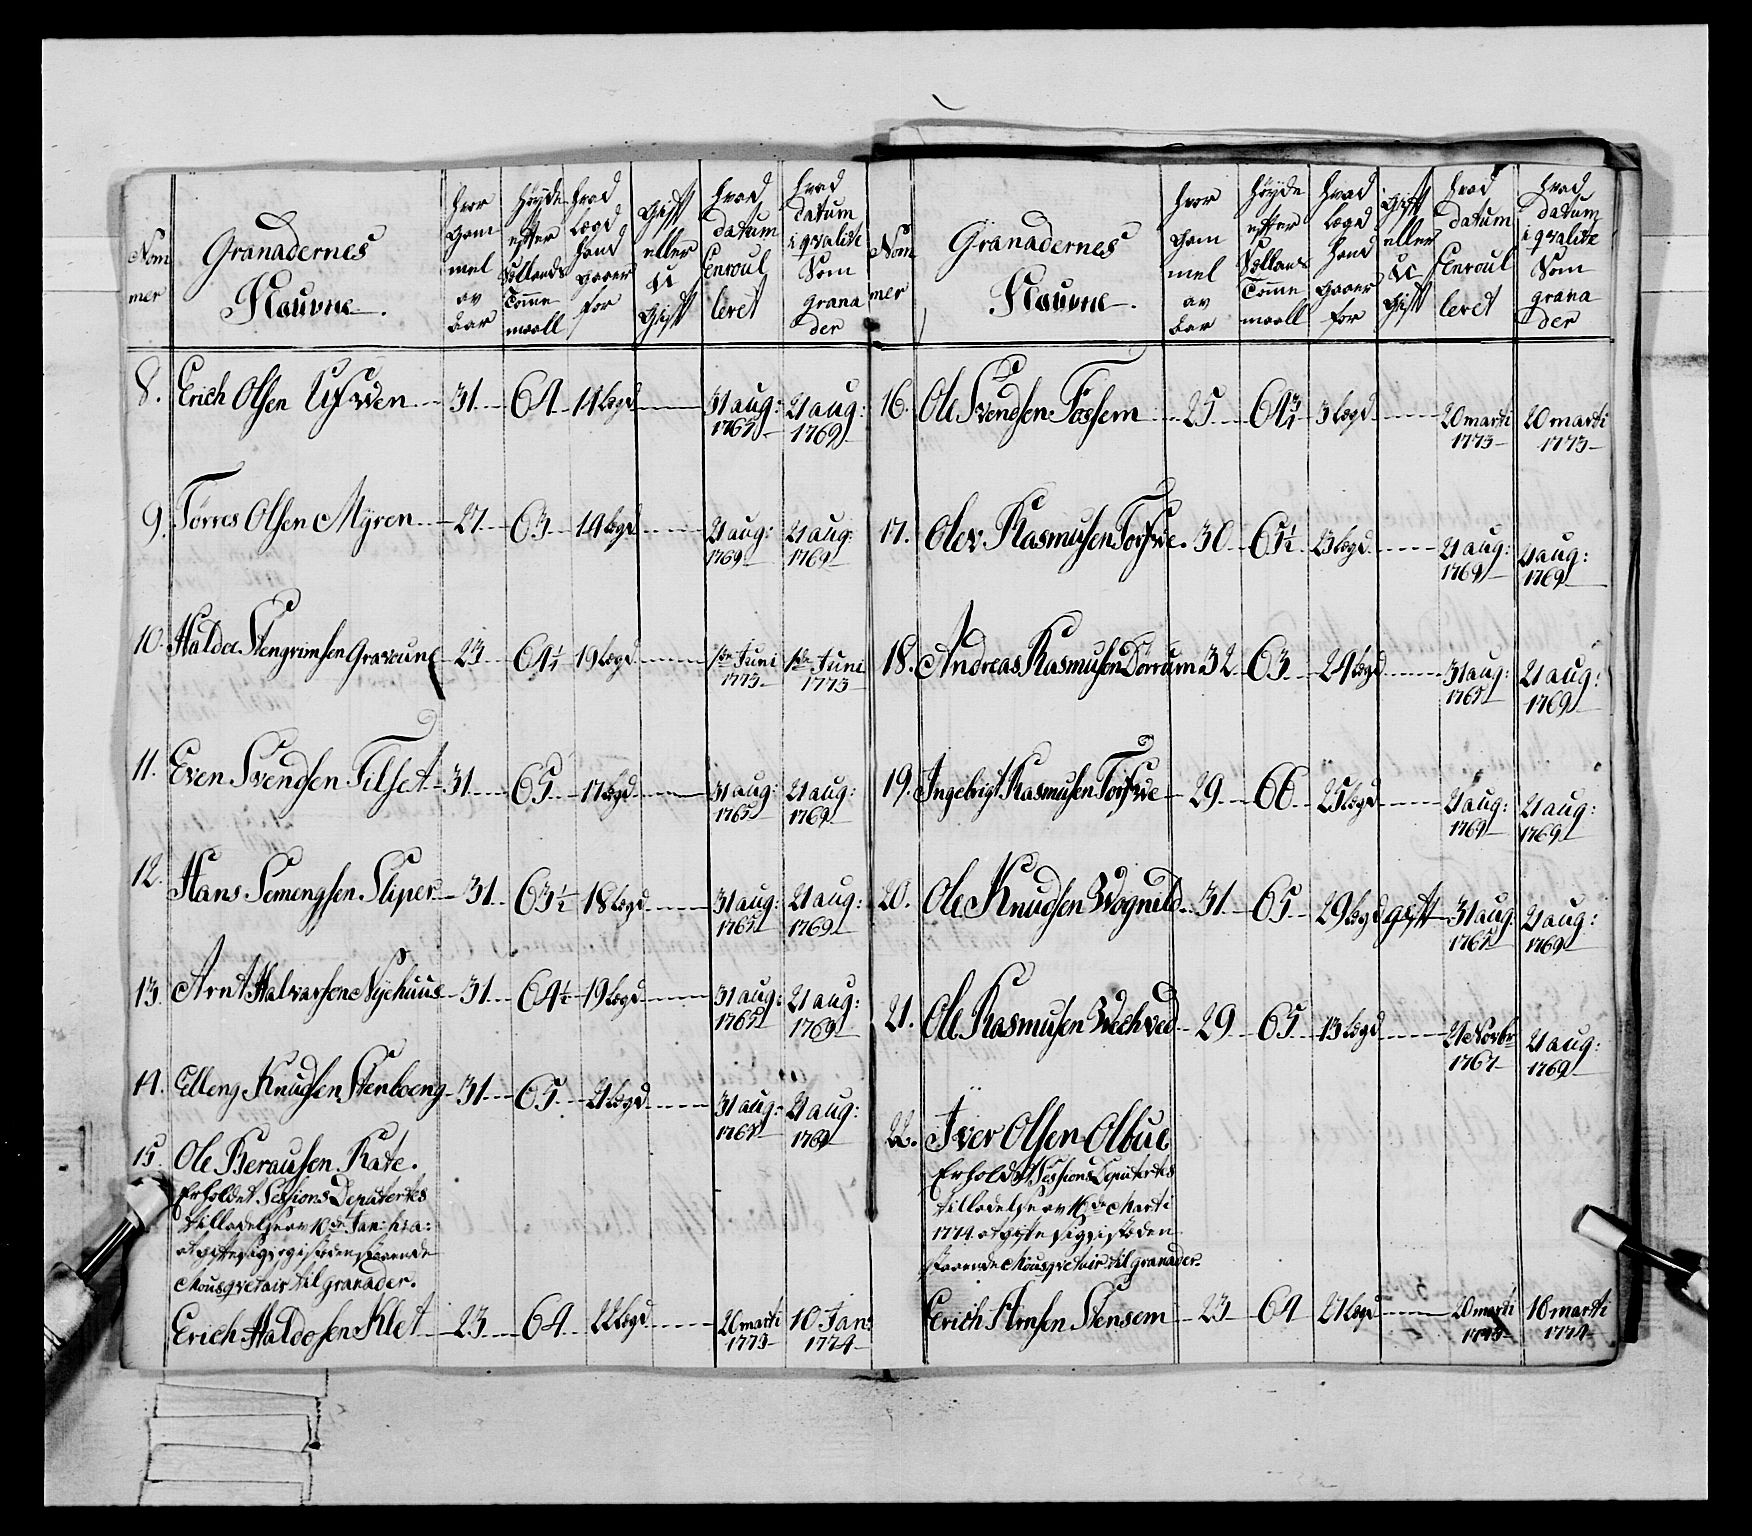 Nom
mer
Granadernes
Nauvne.
hvor
gam
mel
av
aar
Høyde
efter
Sollands
Tomme
maall
hvad
Lægd
hand
gaaer
for
Gift
eller
U
Gift
hvad
datum
Enroul
leret
hvad
datum
i qvalite
Som
grana
der
8. Erich Olsen 31 64 14 Lægd 31 aug: 1765 21 aug: 1769
9. Tørres Olsen Myren 27 63 19 Lægd 21 aug: 1769 21 aug: 1769
10. Haldor Stengrimsen 23 64½ 19 Lægd 1de Juni 1773 1de Juni 1773
11. Even Svendsen Filset 31 65 17 Lægd 31 aug: 1765 21 aug: 1769
12. Hans Semengsen Sliper 31 63½ 18 Lægd 31 aug: 1765 21 aug: 1769
13. Arnt Halvarsen Nyehuus 31 64½ 19 Lægd 31 aug: 1765 21 aug: 1769
14. Elleng Knudsen Stenboeng 31 65 21 Lægd 31 aug: 1765 21 aug: 1769
15. Ole Berausen Kate.
Erholdet Sessions Deputertes
tilladelse av 10de Jan:
Mousqvetair til granader.
Erich Haldosen Klet 23 64 22 Lægd 20 marti 1773 10 Jan: 1774
Nom
mer
Granadernes
Nauvne.
hvor
gam
mel
av
aar
Høyde
efter
Sollans
Tomme
maall
hvad
Lægd
hand
gaaer
for
Gift
eller
U
Gift
hvad
datum
Enroul
leret
hvad
datum
i qvalite
Som
grana
der
16. Ole Svendsen Fossem 25 64¾ 3 Lægd 20 marti 1773 20 marti 1773
17. Olev Rasmusen Torfve 30 65½ 23 Lægd 21 aug: 1769 21 aug: 1769
18. Andreas Rasmusen Dørrum 32 63 24 Lægd 31 aug: 1765 21 aug: 1769
19. Ingebrigt Rasmusen Torfve 29 66 25 Lægd 21 aug: 1769 21 aug: 1769
20. Ole Knudsen Wognild 31 65 29 Lægd gift 31 aug: 1765 21 aug: 1769
21. Ole Rasmusen 29 65 13 Lægd 21 Novbr 1767 21 aug: 1769
22. Iver Olsen Olbue
Erholdt Sessions Deputertes
tilladelse av 16de Marti
1774 at
staaende Mousqvetair til granader.
Erich Arnsen Stensem 23 64 27 Lægd 20 marti 1773 16 marti 1774